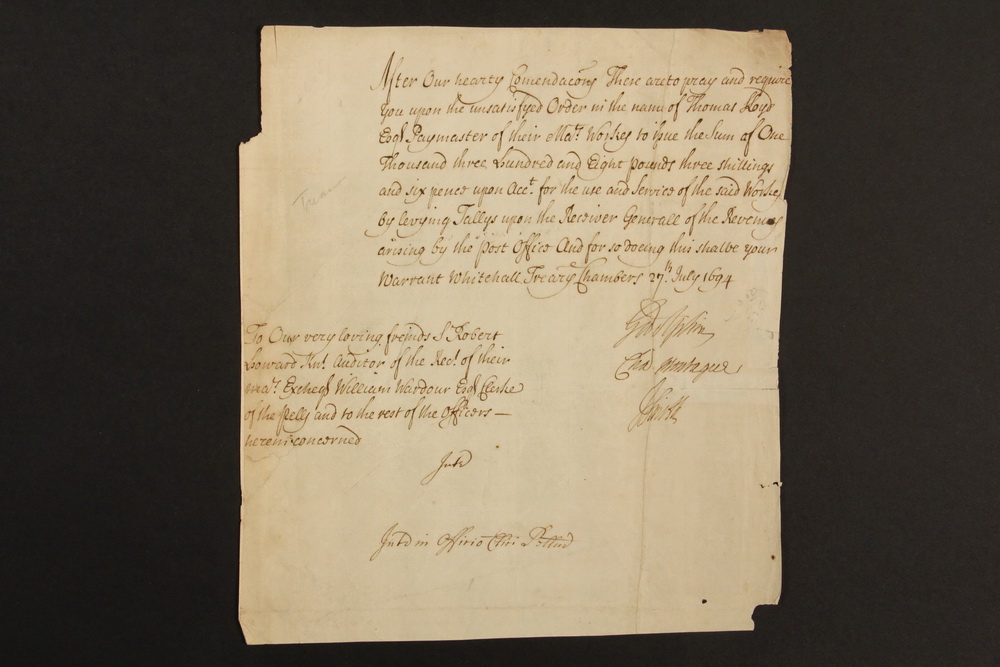 After Our hearty Comendacons These are to pray and require
you upon the unsatisfyed Order in the name of Thomas Lloyd
Esqr Paymaster of their Mats. Workes to issue the Sum of One
Thousand three Hundred and Eight pounds three shillings
and six pence upon Acct. for the use and Service of the said Workes
by levying Tallys upon the Receiver Generall of the Revenues
arising by the post Office And for so doeing this shalbe your
Warrant Whitehall Treasry Chambers 27th. July 1694
Godolphin
Cha Montague
To Our very loving freinds Sr Robert
Howard Knt. Auditor of the Rect. of their
Mats. Excheqr William Wardour Esqr Clerke
of the Pells and to the rest of the Officers —
herein concerned
JSmith
Intr
Intr in Officio Clri Pellium